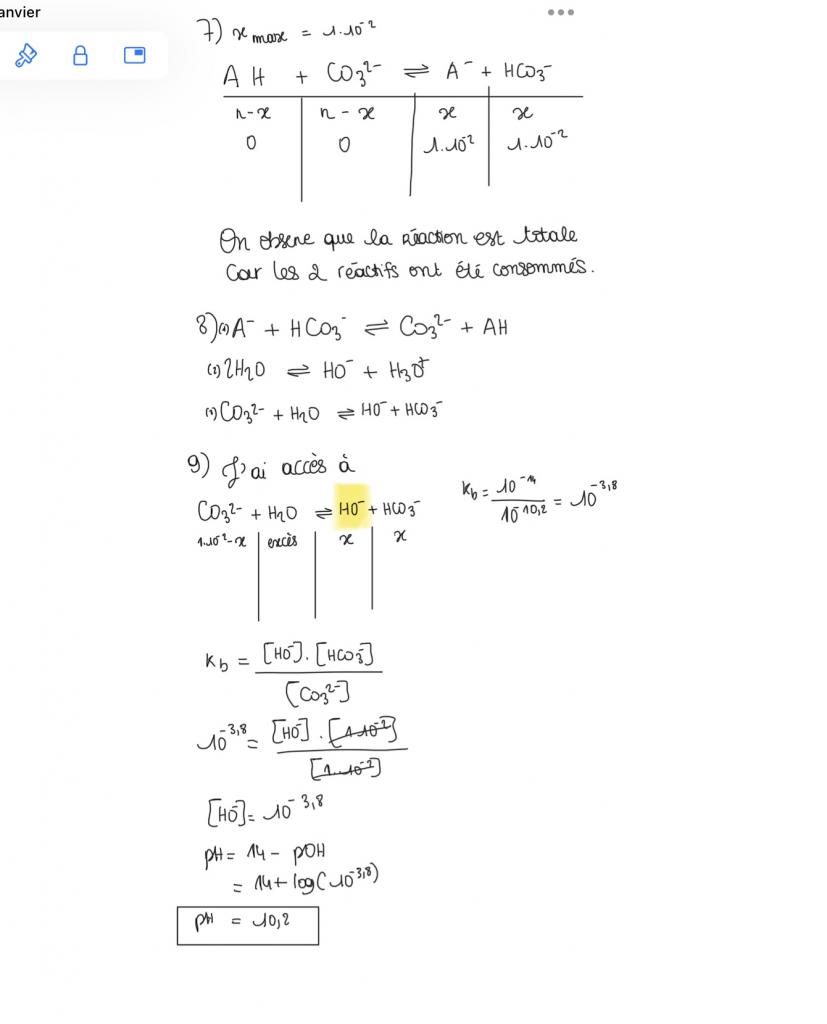 anvier
7) x max = 1.10⁻²
AH + CO₃²⁻ ⇌ A⁻ + HCO₃⁻
n-x n-x x x
0 0 1.10⁻² 1.10⁻²
On observe que la réaction est totale
car les 2 réactifs ont été consommés.
8) (1) A⁻ + HCO₃⁻ ⇌ CO₃²⁻ + AH
(2) 2H₂O ⇌ HO⁻ + H₃O⁺
CO₃²⁻ + H₂O ⇌ HO⁻ + HCO₃⁻
9) J'ai accès à
CO₃²⁻ + H₂O ⇌ HO⁻ + HCO₃⁻
Kb = 10⁻¹⁴ / 10⁻¹⁰,² = 10⁻³,⁸
1.10⁻²-x excès x x
Kb = [HO⁻].[HCO₃⁻] / [CO₃²⁻]
10⁻³,⁸ = [HO⁻].[1.10⁻²] / [1.10⁻²]
[HO⁻] = 10⁻³,⁸
pH = 14 - pOH
= 14 + log(10⁻³,⁸)
pH = 10,2